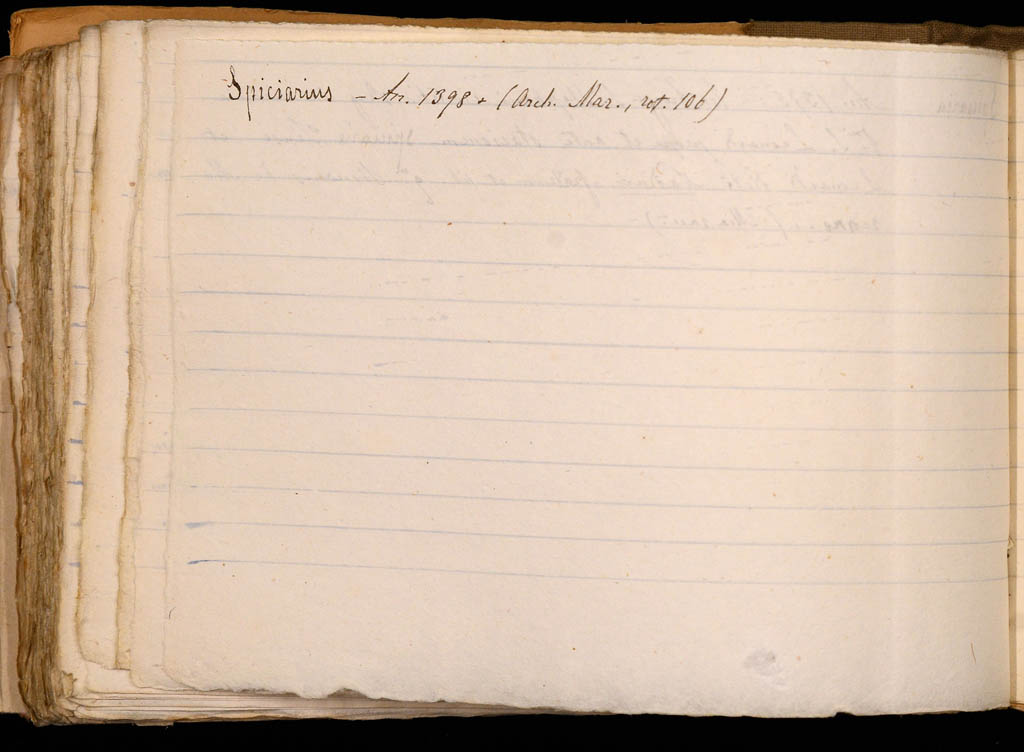 Spiciarius – An. 1398 + (Arch. Mar., rot. 106)